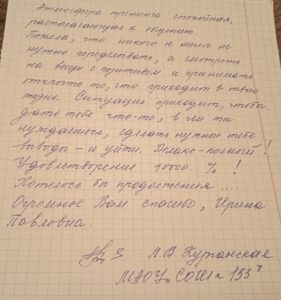 Атмосфера тренинга спокойная,
располагающая к общению
Поняла, что никого и ничего не
нужно переделывать, а смотреть
на вещи с позитивом и принимать
открыто то, что приходит в твою
жизнь. Ситуация приходит, чтобы
дать тебе что-то, в чём ты
нуждаешься, сделать нужные тебе
выводы - и уйти. Релакс - полный!
Удовлетворения 1000 %!
Хотелось бы продолжения....
Огромное Вам спасибо, Ирина
Павловна.
Купанская
МАОУ „СОШ №